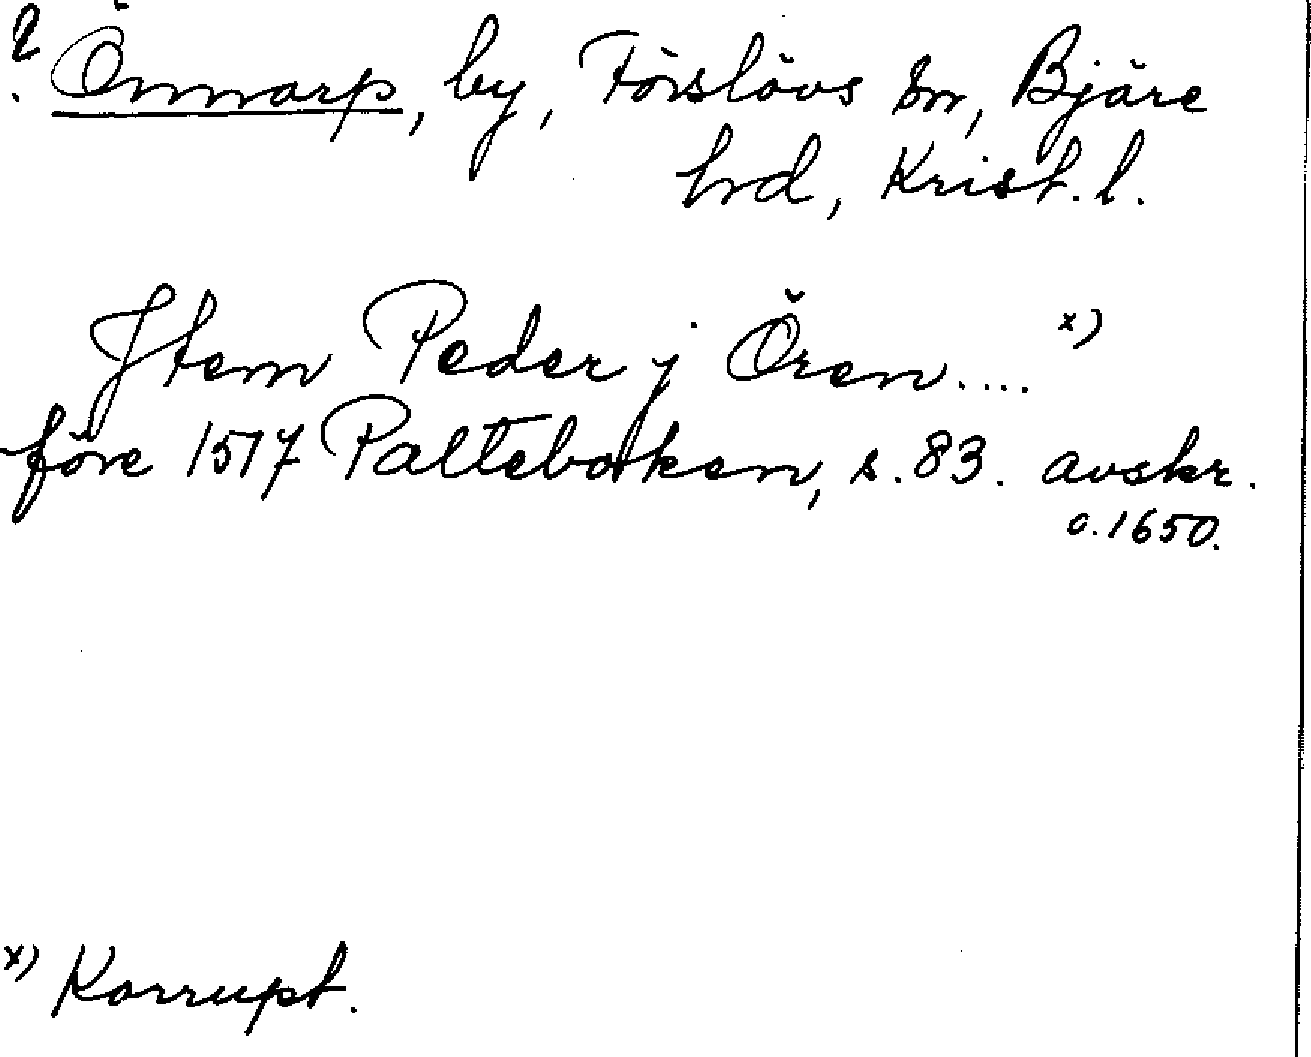 ? Önnarp, by, Förslövs sn, Bjäre
hrd, Krist. l.
Jtem Peder j Ören.... x)
före 1517 Palteboken, s. 83. avskr.
c. 1650.
x) Korrupt.